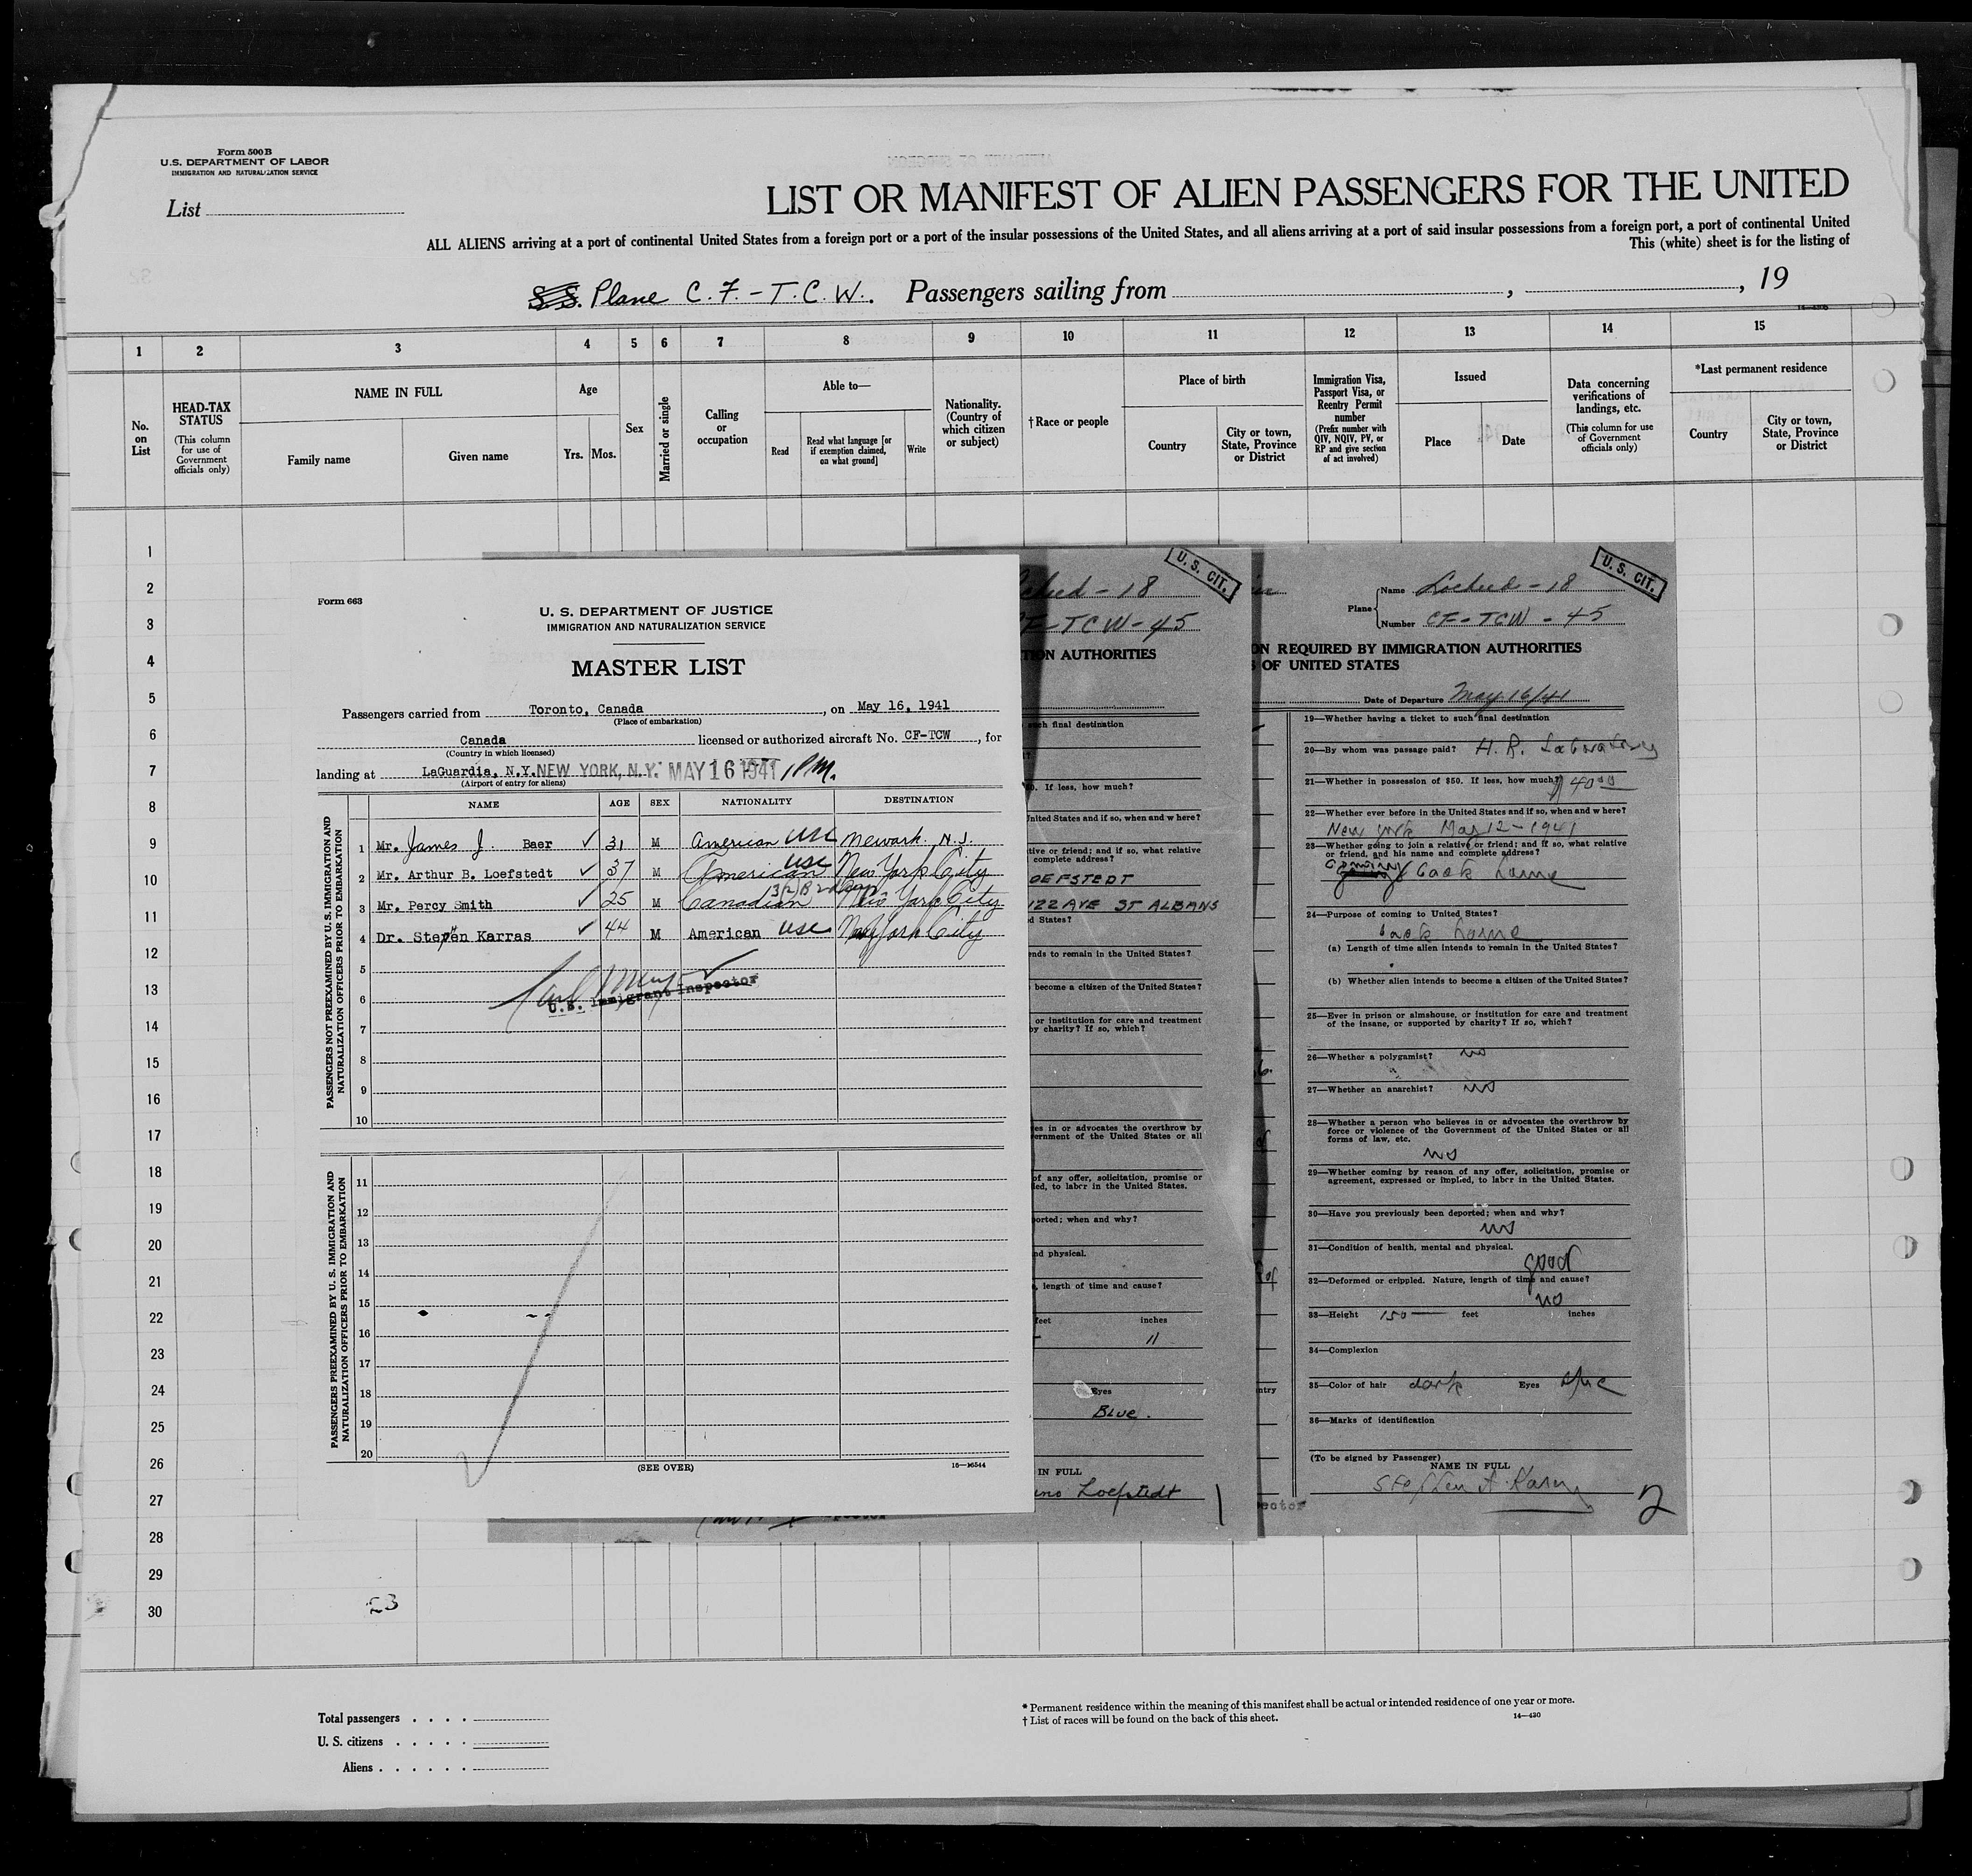 Form 500B
U.S. DEPARTMENT OF LABOR
IMMIGRATION AND NATURALIZATION SERVICE
List
LIST OR MANIFEST OF ALIEN PASSENGERS FOR THE UNITED
ALL ALIENS arriving at a port of continental United States from a foreign port or a port of the insular possessions of the United States, and all aliens arriving at a port of said insular possessions from a foreign port, a port of continental United
This (white) sheet is for the listing of
S.S. Plane C.F.-T.C.W. Passengers sailing from , , 19
1 2 3 4 5 6 7 8 9 10 11 12 13 14 15
No. on List
HEAD-TAX STATUS
(This column for use of Government officials only)
NAME IN FULL
Family name
Given name
Age
Yrs. Mos.
Sex
Married or single
Calling or occupation
Able to—
Read
Read what language [or if exemption claimed, on what ground]
Write
Nationality. (Country of which citizen or subject)
†Race or people
Place of birth
Country
City or town, State, Province or District
Immigration Visa, Passport Visa, or Reentry Permit number
(Prefix number with QIV, NQIV, PV, or RP and give section of act involved)
Issued
Place
Date
Data concerning verifications of landings, etc.
(This column for use of Government officials only)
*Last permanent residence
Country
City or town, State, Province or District
1
2
3
4
5
6
7
8
9
10
11
12
13
14
15
16
17
18
19
20
21
22
23
24
25
26
27
28
29
30
Form 663
U. S. DEPARTMENT OF JUSTICE
IMMIGRATION AND NATURALIZATION SERVICE
MASTER LIST
Passengers carried from Toronto, Canada, on May 16, 1941
(Place of embarkation)
Canada licensed or authorized aircraft No. CF-TCW, for
(Country in which licensed)
landing at LaGuardia, N.Y. NEW YORK, N.Y. MAY 16 1941 1 P.M.
(Airport of entry for aliens)
NAME AGE SEX NATIONALITY DESTINATION
PASSENGERS NOT PREEXAMINED BY U. S. IMMIGRATION AND NATURALIZATION OFFICERS PRIOR TO EMBARKATION
1 Mr. James J. Baer ✓ 31 M American USC Newark N.J.
2 Mr. Arthur B. Loefstedt ✓ 37 M American USC New York City
3 Mr. Percy Smith ✓ 25 M Canadian New York City
4 Dr. Stephen Karras ✓ 44 M American USC New York City
5
U.S. Immigrant Inspector
6
7
8
9
10
PASSENGERS PREEXAMINED BY U. S. IMMIGRATION AND NATURALIZATION OFFICERS PRIOR TO EMBARKATION
11
12
13
14
15
16
17
18
19
20
(SEE OVER)
16—16544
U. S. CIT.
- 18
CF-TCW-45
TION AUTHORITIES
such final destination
If less, how much?
United States and if so, when and where?
tive or friend; and if so, what relative
complete address?
OEFSTEDT
122 AVE ST ALBANS
d States?
ends to remain in the United States?
become a citizen of the United States?
or institution for care and treatment
by charity? If so, which?
es in or advocates the overthrow by
ernment of the United States or all
of any offer, solicitation, promise or
ied, to labor in the United States.
ported; when and why?
nd physical.
, length of time and cause?
feet inches
11
Eyes
BLUE.
IN FULL
Loefstedt
1
U. S. CIT.
Plane
Name Locheed - 18
Number CF-TCW - 45
ON REQUIRED BY IMMIGRATION AUTHORITIES
OF UNITED STATES
Date of Departure May 16/41
19—Whether having a ticket to such final destination
20—By whom was passage paid? H. R. Laboratory
21—Whether in possession of $50. If less, how much? $40.00
22—Whether ever before in the United States and if so, when and where?
New York Mar 12 - 1941
23—Whether going to join a relative or friend; and if so, what relative
or friend, and his name and complete address?
going back home
24—Purpose of coming to United States?
back home
(a) Length of time alien intends to remain in the United States?
(b) Whether alien intends to become a citizen of the United States?
25—Ever in prison or almshouse, or institution for care and treatment
of the insane, or supported by charity? If so, which?
26—Whether a polygamist? no
27—Whether an anarchist? no
28—Whether a person who believes in or advocates the overthrow by
force or violence of the Government of the United States or all
forms of law, etc.
no
29—Whether coming by reason of any offer, solicitation, promise or
agreement, expressed or implied, to labor in the United States.
30—Have you previously been deported; when and why?
no
31—Condition of health, mental and physical.
good
32—Deformed or crippled. Nature, length of time and cause?
no
33—Height 150 feet inches
34—Complexion
35—Color of hair dark Eyes
36—Marks of identification
(To be signed by Passenger)
NAME IN FULL
Stephen A Karras
2
Total passengers
U. S. citizens
Aliens
* Permanent residence within the meaning of this manifest shall be actual or intended residence of one year or more.
† List of races will be found on the back of this sheet.
14—430